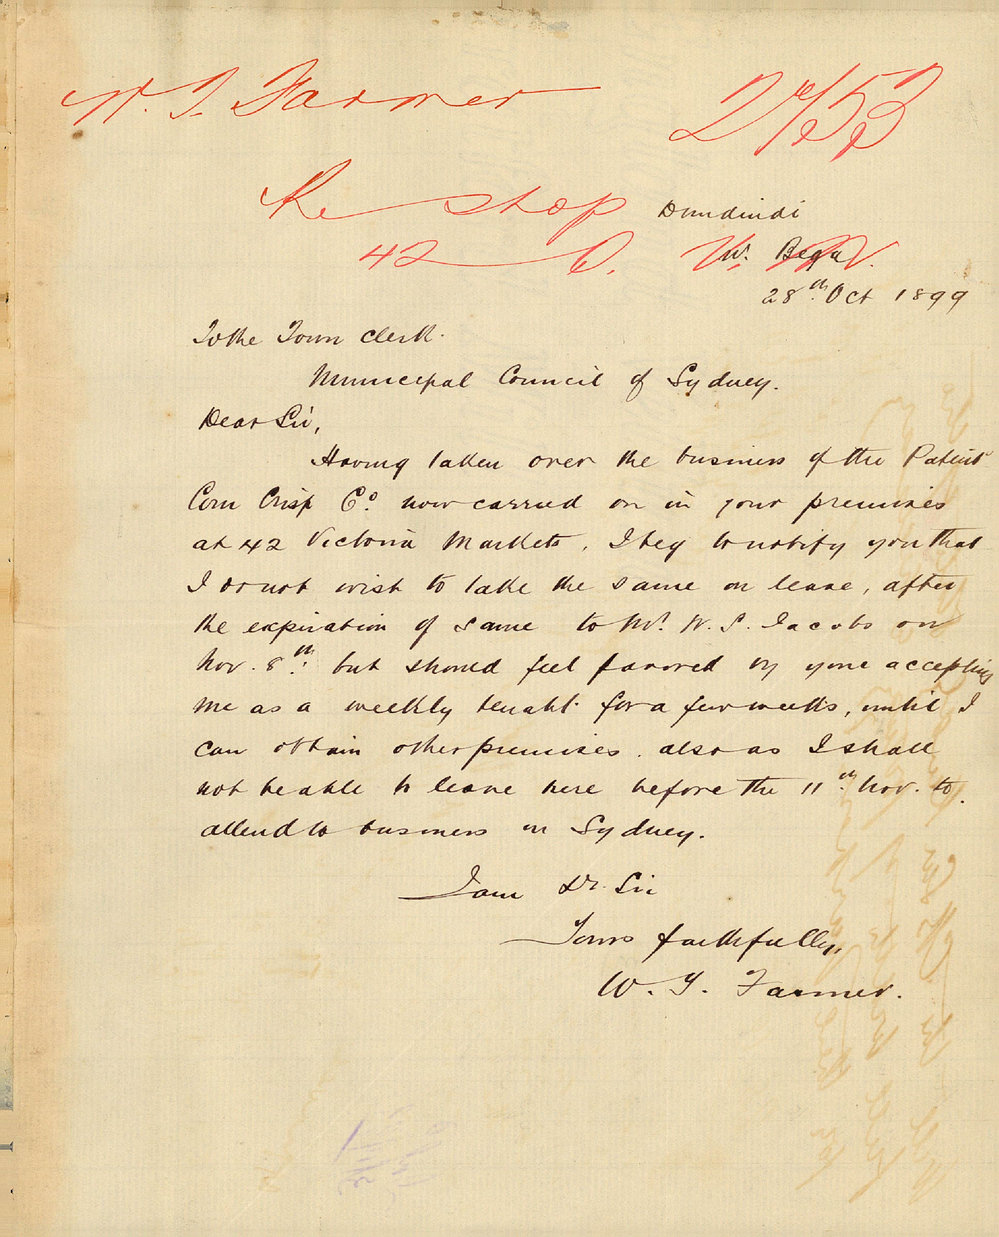 W. T. Farmer
Re shop
42 Q. V. M.
Dundundi
Nr. Bega
28th. Oct 1899
To the Town Clerk.
Municipal Council of Sydney.
Dear Sir,
Having taken over the business of the Patent
Corn Crisp Co. now carried on in your premises
at 42 Victoria Markets, I beg to notify you that
I do not wish to take the same on lease, after
the expiration of same to Mr. W. S. Jacobs on
Nov. 8th. but should feel favored by your accepting
me as a weekly tenant for a few weeks, until I
can obtain other premises. also as I shall
not be able to leave here before the 11th. Nov. to
attend to business in Sydney.
I am Dr. Sir
Yours faithfully,
W. T. Farmer.